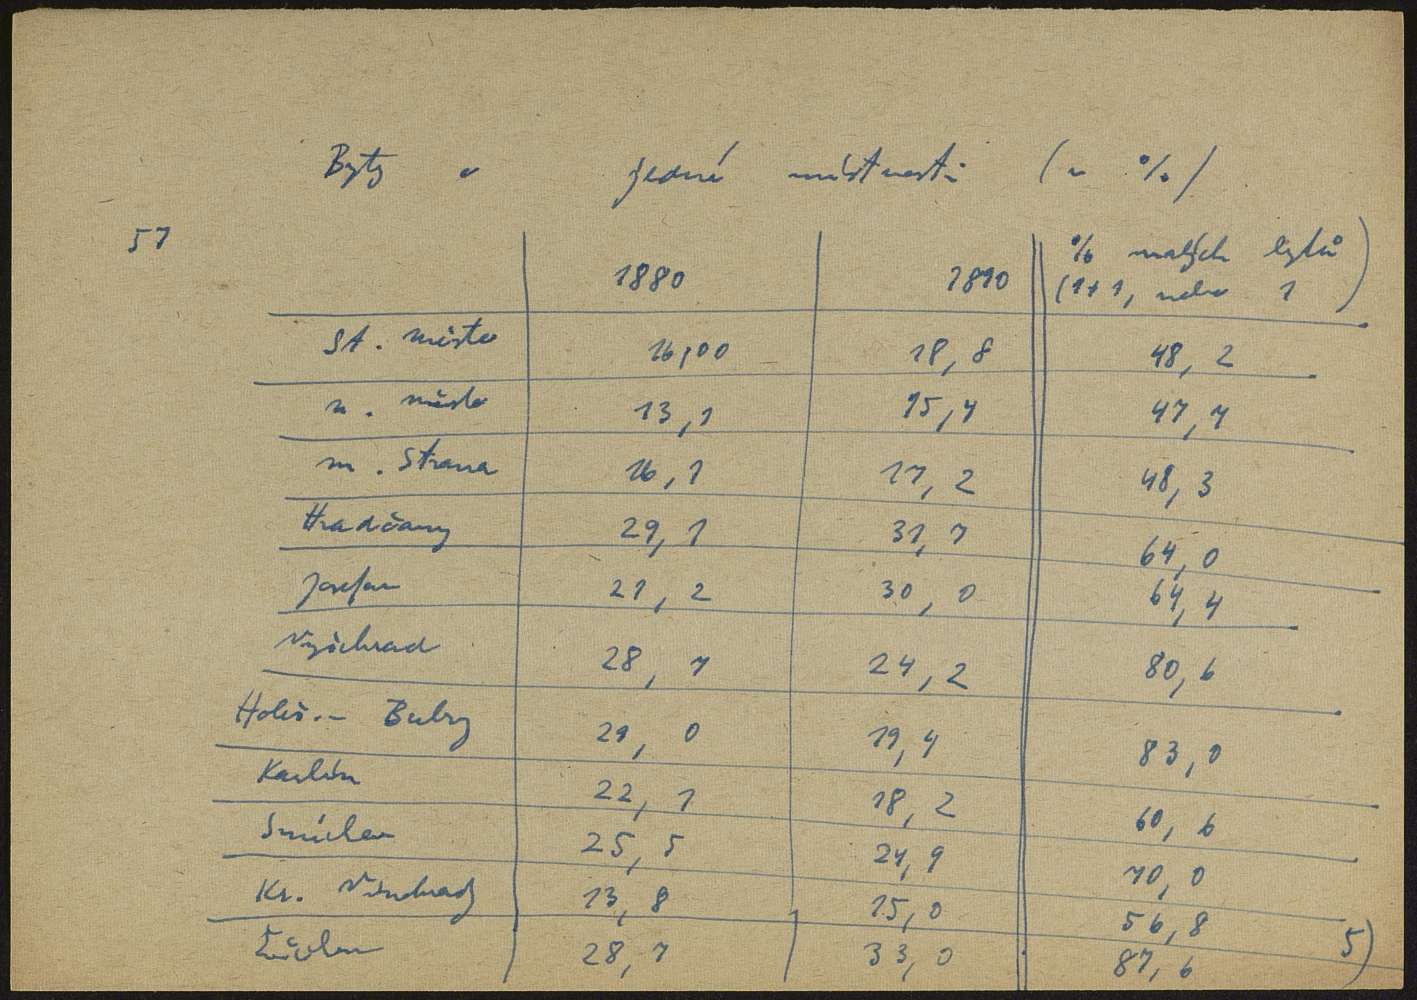 Byty o jedné místnosti (v %)
57
1880 1890 % malých bytů
(1+1, nebo 1)
St. město 16,00 18,8 48,2
N. město 13,1 15,4 47,7
M. Strana 16,1 17,2 48,3
Hradčany 29,1 31,7 64,0
Josefov 21,2 30,0 64,4
Vyšehrad 28,7 24,2 80,6
Holeš.- Bubny 29,0 19,4 83,0
Karlín 22,1 18,2 60,6
Smíchov 25,5 24,9 70,0
Kr. Vinohrady 13,8 15,0 56,8
Žižkov 28,7 33,0 87,6 5)